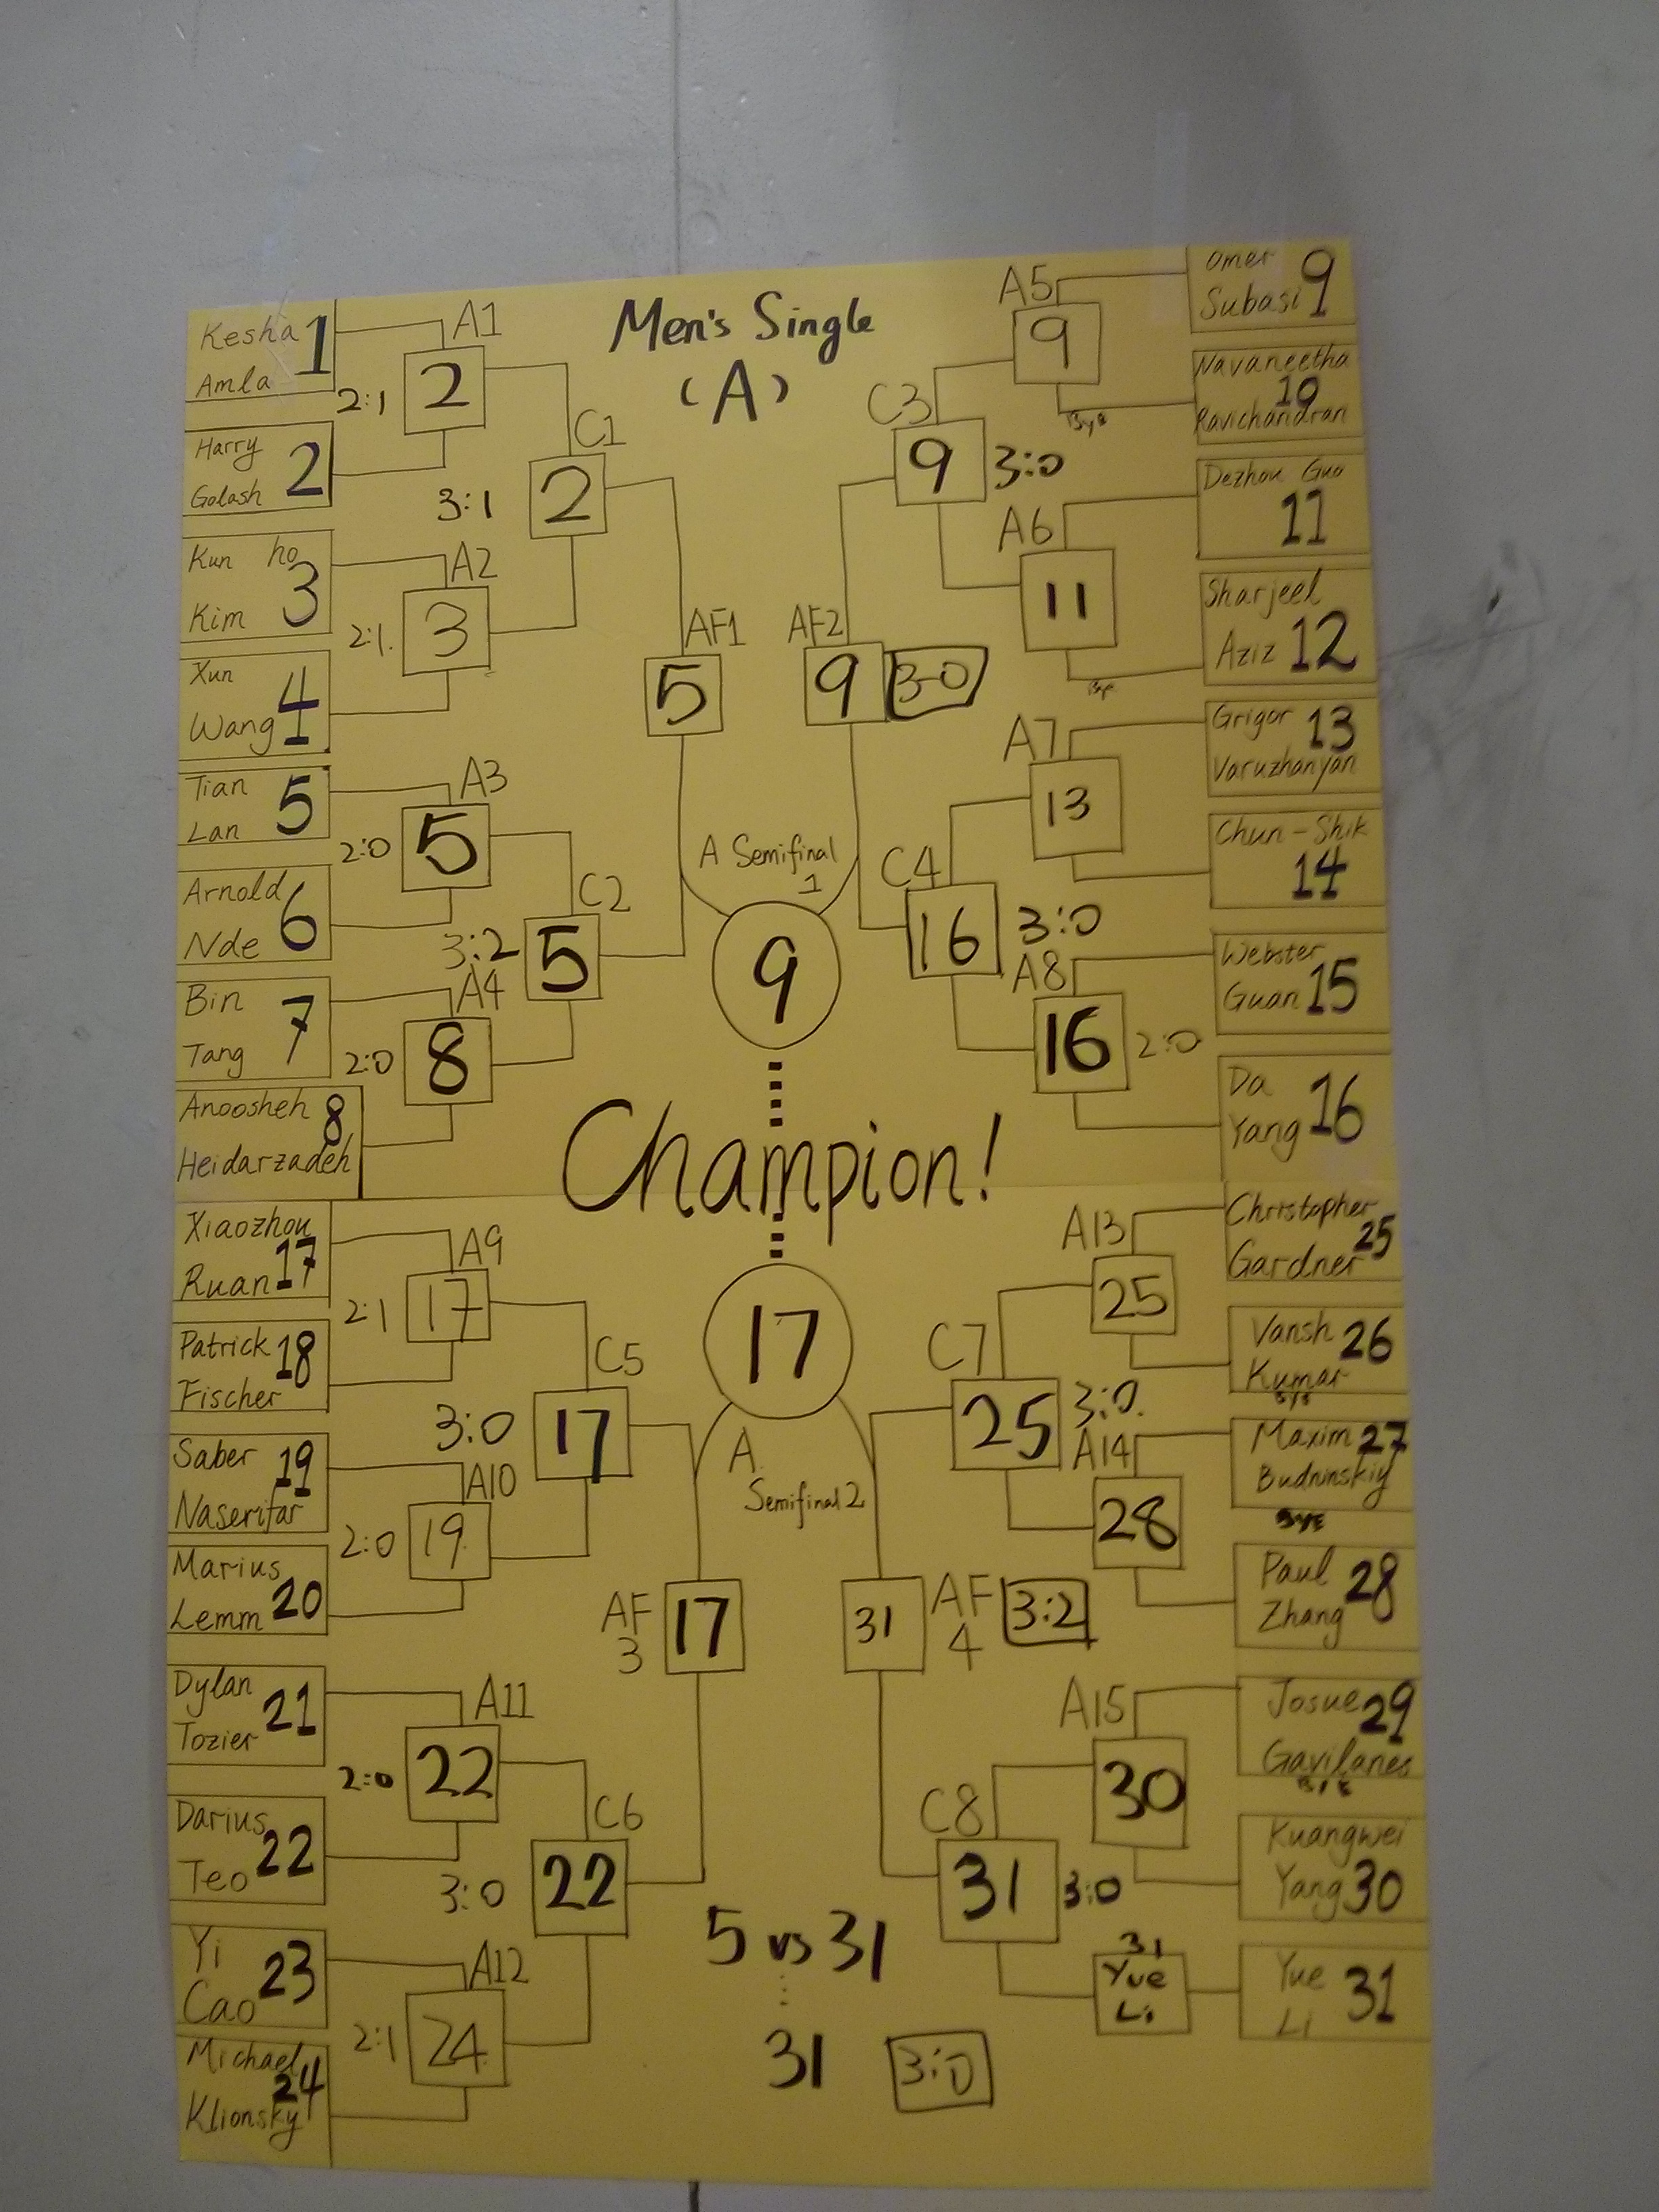 Men's Single
(A)
Kesha 1
Amla
A1
2:1
2
Harry
Golash 2
C1
3:1
2
Kun ho
Kim 3
A2
2:1.
3
Xun
Wang 4
AF1
5
Tian
Lan 5
A3
2:0
5
Arnold
Nde 6
C2
3:2
5
Bin
Tang 7
A4
2:0
8
Anoosheh 8
Heidarzadeh
A5
9
Omer
Subasi 9
Bye
Navaneetha
10
Ravichandran
C3
9
3:0
Dezhou Guo
11
A6
11
Bye
Sharjeel
Aziz 12
AF2
9
3-0
Grigor 13
Varuzhanyan
A7
13
Chun-Shik
14
C4
16
3:0
Webster
Guan 15
A8
16
2:0
Da
Yang 16
A Semifinal
1
9
Champion!
17
A
Semifinal 2
Xiaozhou
Ruan 17
A9
2:1
17
Patrick 18
Fischer
C5
3:0
17
Saber 19
Naserifar
A10
2:0
19
Marius
Lemm 20
AF
3
17
Dylan
Tozier 21
A11
2:0
22
Darius
Teo 22
C6
3:0
22
Yi
Cao 23
A12
2:1
24
Michael
24
Klionsky
A13
25
Christopher
25
Gardner
Vansh 26
Kumar
BYE
C7
25
3:0.
A14
28
Maxim 27
Budninskiy
BYE
Paul 28
Zhang
31
AF
4
3:2
A15
30
Josue 29
Gavilanes
BYE
C8
31
3:0
Kuangwei
Yang 30
31
Yue
Li
Yue 31
Li
5 vs 31
31
3:0